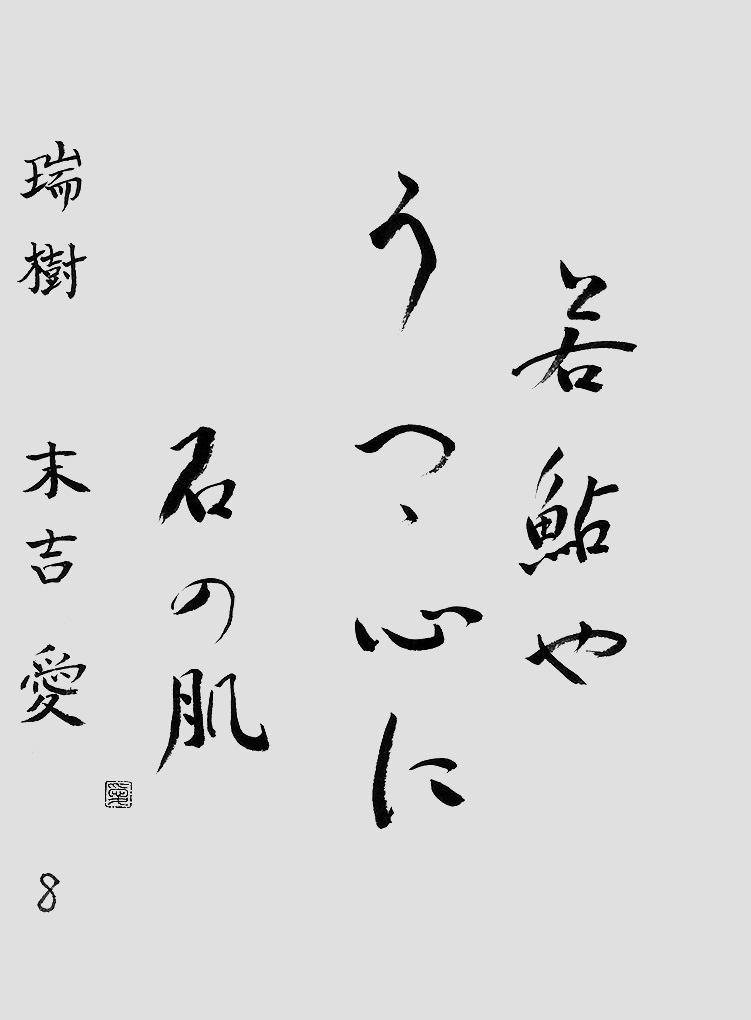 若鮎や
うつゝ心に
石の肌
瑞樹 末吉愛
愛
8